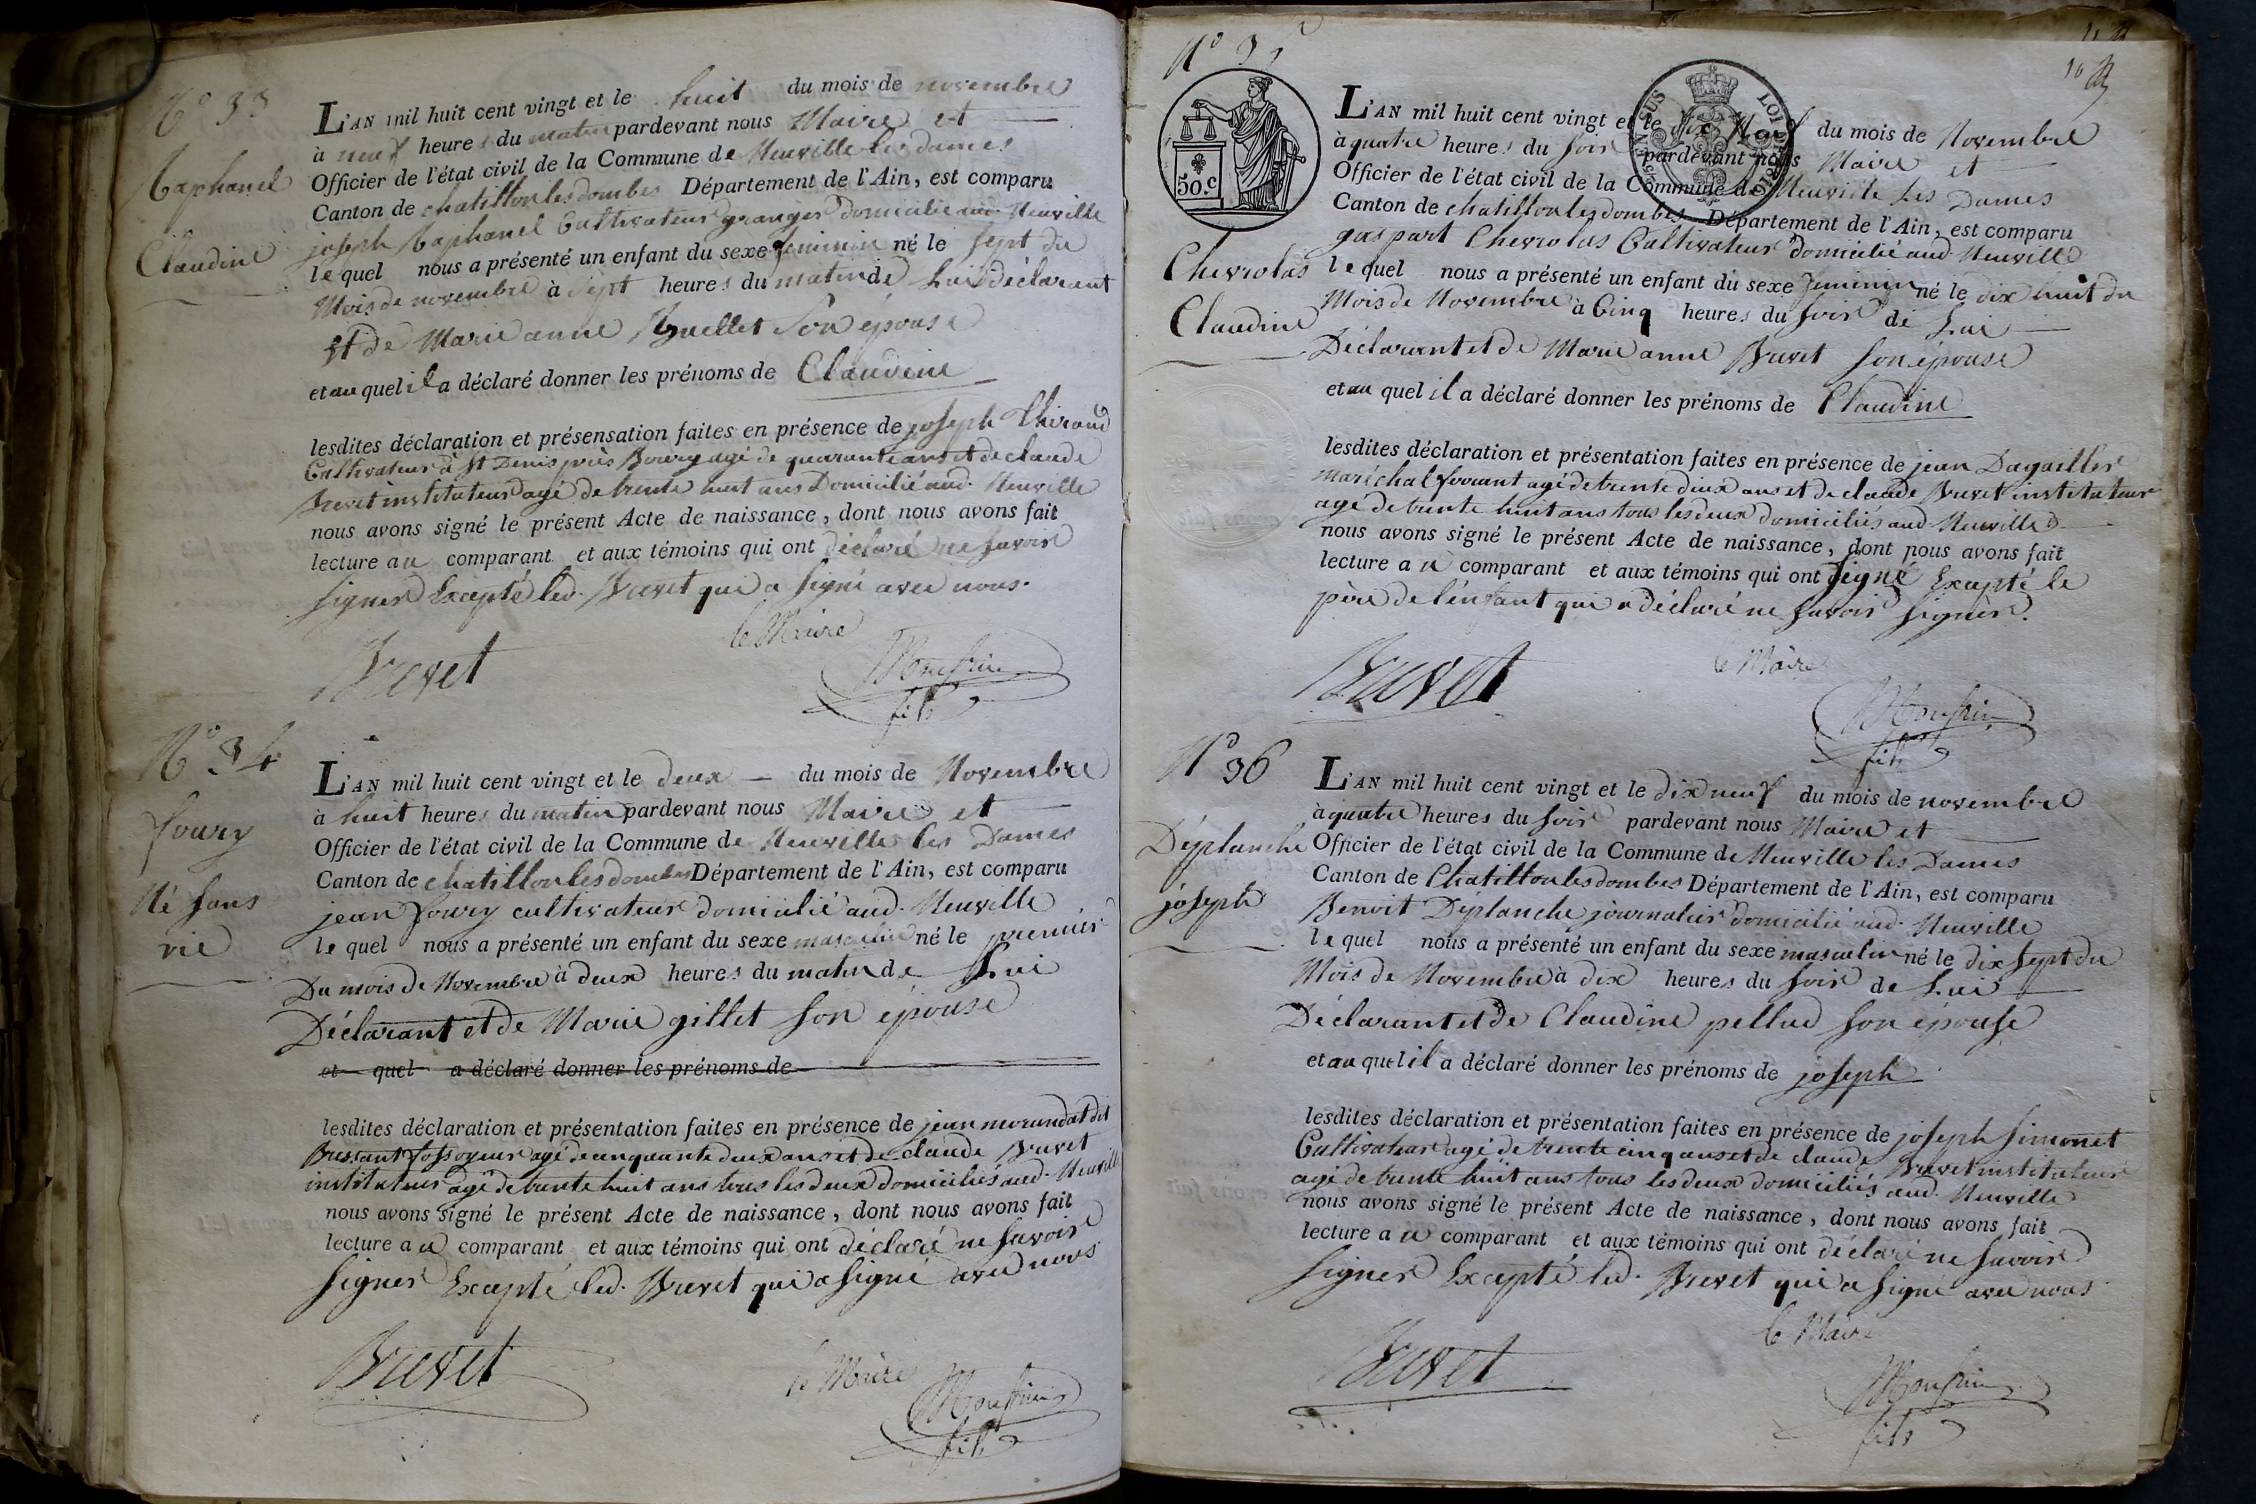 N.° 33
Raphanel
Claudine
L'AN mil huit cent vingt et le huit du mois de novembre
à neuf heures du matin pardevant nous Maire et
Officier de l'état civil de la Commune de Neuville les dames
Canton de chatillon les dombes Département de l'Ain, est comparu
joseph Raphanel Cultivateur granger domicilié aud. Neuville
le quel nous a présenté un enfant du sexe feminin né le sept du
Mois de novembre à sept heures du matin de Lui déclarant
et de Marie anne son épouse
et au quel il a déclaré donner les prénoms de Claudine
lesdites déclaration et présensation faites en présence de joseph Thiroud
Cultivateur à St Denis près Bourg agé de quarante ans et de claude
Brevet instituteur agé de trente huit ans Domicilié aud. Neuville
nous avons signé le présent Acte de naissance, dont nous avons fait
lecture au comparant et aux témoins qui ont déclaré ne savoir
signer Excepté led. Brevet qui a signé avec nous.
le Maire
Brevet
Monfrin
fils
N.° 34
foury
Né sans
vie
L'AN mil huit cent vingt et le deux du mois de Novembre
à huit heures du matin pardevant nous Maire et
Officier de l'état civil de la Commune de Neuville les Dames
Canton de chatillon les dombes Département de l'Ain, est comparu
jean foury cultivateur domicilié aud. Neuville
le quel nous a présenté un enfant du sexe masculin né le premier
Du mois de Novembre à deux heures du matin de Lui
Déclarant et de Marie gillet son épouse
et quel a déclaré donner les prénoms de
lesdites déclaration et présentation faites en présence de jean morandat dit
Bressant fossoyeur agé de cinquante deux ans et de claude Brevet
instituteur agé de trente huit ans tous les deux domiciliés aud. Neuville
nous avons signé le présent Acte de naissance, dont nous avons fait
lecture au comparant et aux témoins qui ont déclaré ne savoir
signer Excepté led. Brevet qui a signé avec nous
Brevet
le Maire
Monfrin
fils
16
N.° 35
50.c
LOI DE 1816
Chevrolas
Claudine
L'AN mil huit cent vingt et le dix Neuf du mois de Novembre
à quatre heures du soir pardevant nous Maire et
Officier de l'état civil de la Commune de Neuville Les Dames
Canton de chatillon les dombes Département de l'Ain, est comparu
gaspart Chevrolas Cultivateur domicilié aud. Neuville
le quel nous a présenté un enfant du sexe feminin né le dix huit du
Mois de Novembre à Cinq heures du soir de Lui
Déclarant et de Marie anne Buret son épouse
et au quel il a déclaré donner les prénoms de Claudine
lesdites déclaration et présentation faites en présence de jean Dagaillier
maréchal ferrant agé de trente deux ans et de claude Brevet instituteur
agé de trente huit ans tous les deux domiciliés aud. Neuville
nous avons signé le présent Acte de naissance, dont nous avons fait
lecture au comparant et aux témoins qui ont signé Excepté le
père de l'enfant qui a déclaré ne savoir signer.
le Maire
Brevet
Monfrin
fils
N.° 36
Déplanche
joseph
L'AN mil huit cent vingt et le dix neuf du mois de novembre
à quatre heures du soir pardevant nous Maire et
Officier de l'état civil de la Commune de Neuville les Dames
Canton de Chatillon les dombes Département de l'Ain, est comparu
Benoit Déplanche journalier domicilié aud. Neuville
le quel nous a présenté un enfant du sexe masculin né le dix sept du
Mois de Novembre à dix heures du soir de Lui
Déclarant et de Claudine pellud son épouse
et au quel il a déclaré donner les prénoms de joseph
lesdites déclaration et présentation faites en présence de joseph simonet
Cultivateur agé de trente cinq ans et de claude Brevet instituteur
agé de trente huit ans tous les deux domiciliés aud. Neuville
nous avons signé le présent Acte de naissance, dont nous avons fait
lecture au comparant et aux témoins qui ont déclaré ne savoir
signer Excepté led. Brevet qui a signé avec nous
le Maire
Brevet
Monfrin
fils